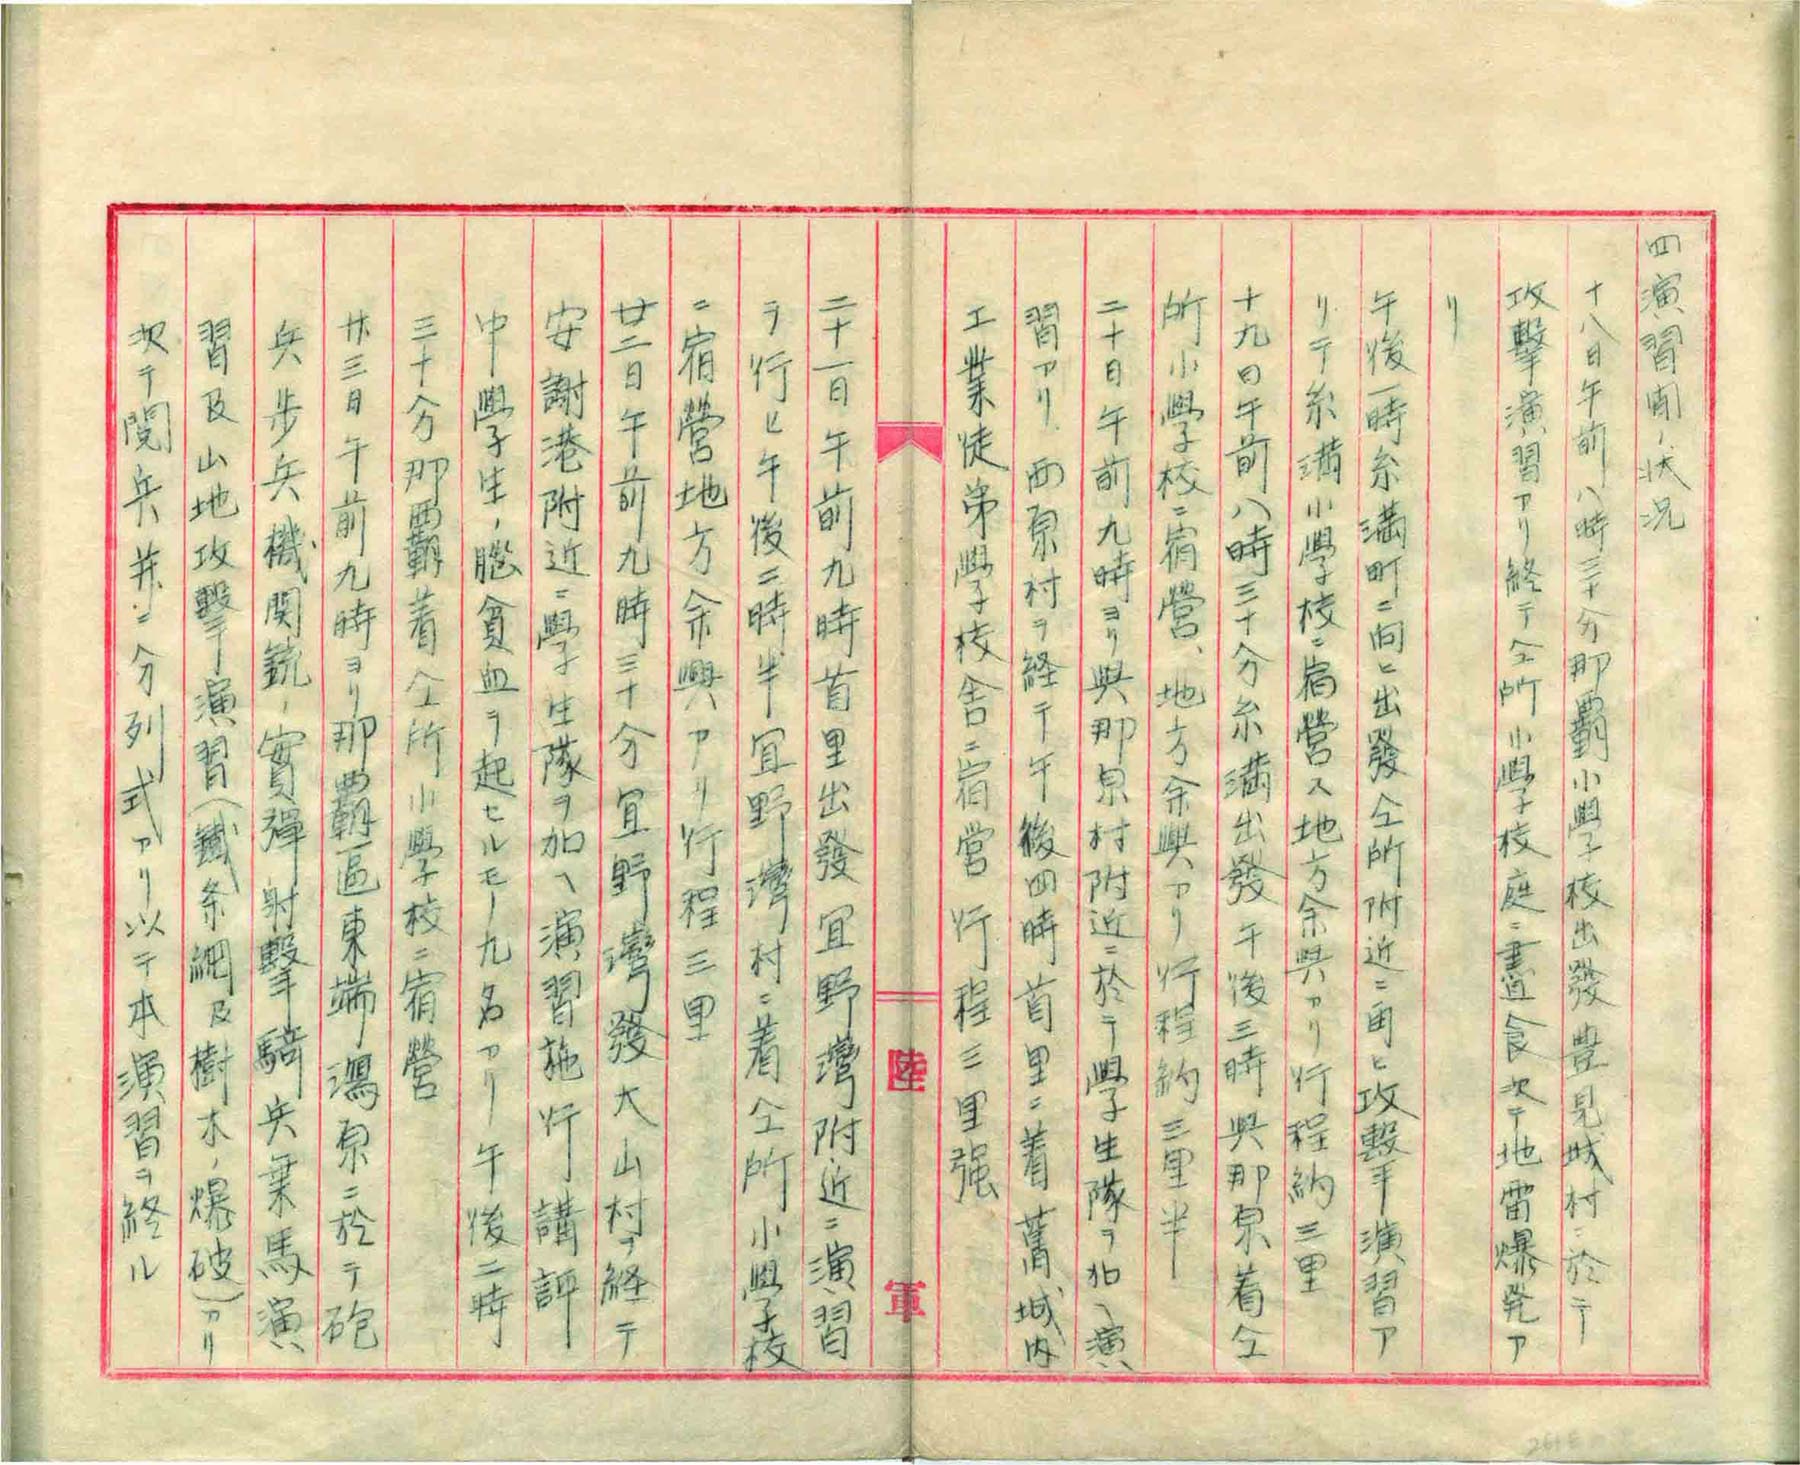 四演習間ノ状況
十八日午前八時三十分那覇小學校出發豊見城村ニ於テ
攻擊演習アリ終テ仝所小學校庭ニ晝食次テ地雷爆発ア
リ
午後一時糸満町ニ向ヒ出發仝所附近ニ向ヒ攻擊演習ア
リテ糸満小學校ニ宿營ス地方余興アリ行程約三里
十九日午前八時三十分糸満出發午後三時與那原着仝
所小學校ニ宿營、地方余興アリ行程約三里半
二十日午前九時ヨリ與那原村附近ニ於テ學生隊ヲ加ヘ演
習アリ西原村ヲ経テ午後四時首里ニ着舊城内
工業徒弟學校舎ニ宿営行程三里强
陸軍
二十一日午前九時首里出發宜野灣附近ニ演習
ヲ行ヒ午後二時半宜野灣村ニ着仝所小學校
ニ宿營地方余興アリ行程三里
廿二日午前九時三十分宜野灣發大山村ヲ経テ
安謝港附近ニ學生隊ヲ加ヘ演習施行講評
中學生ノ腦貧血ヲ起セルモノ九名アリ午後二時
三十分那覇着仝所小學校ニ宿營
廿三日午前九時ヨリ那覇區東端潟原ニ於テ砲
兵歩兵機関銃ノ實彈射擊騎兵乗馬演
習及山地攻擊演習(鐵条網及樹木ノ爆破)アリ
次テ閲兵并ニ分列式アリ以テ本演習ヲ終ル